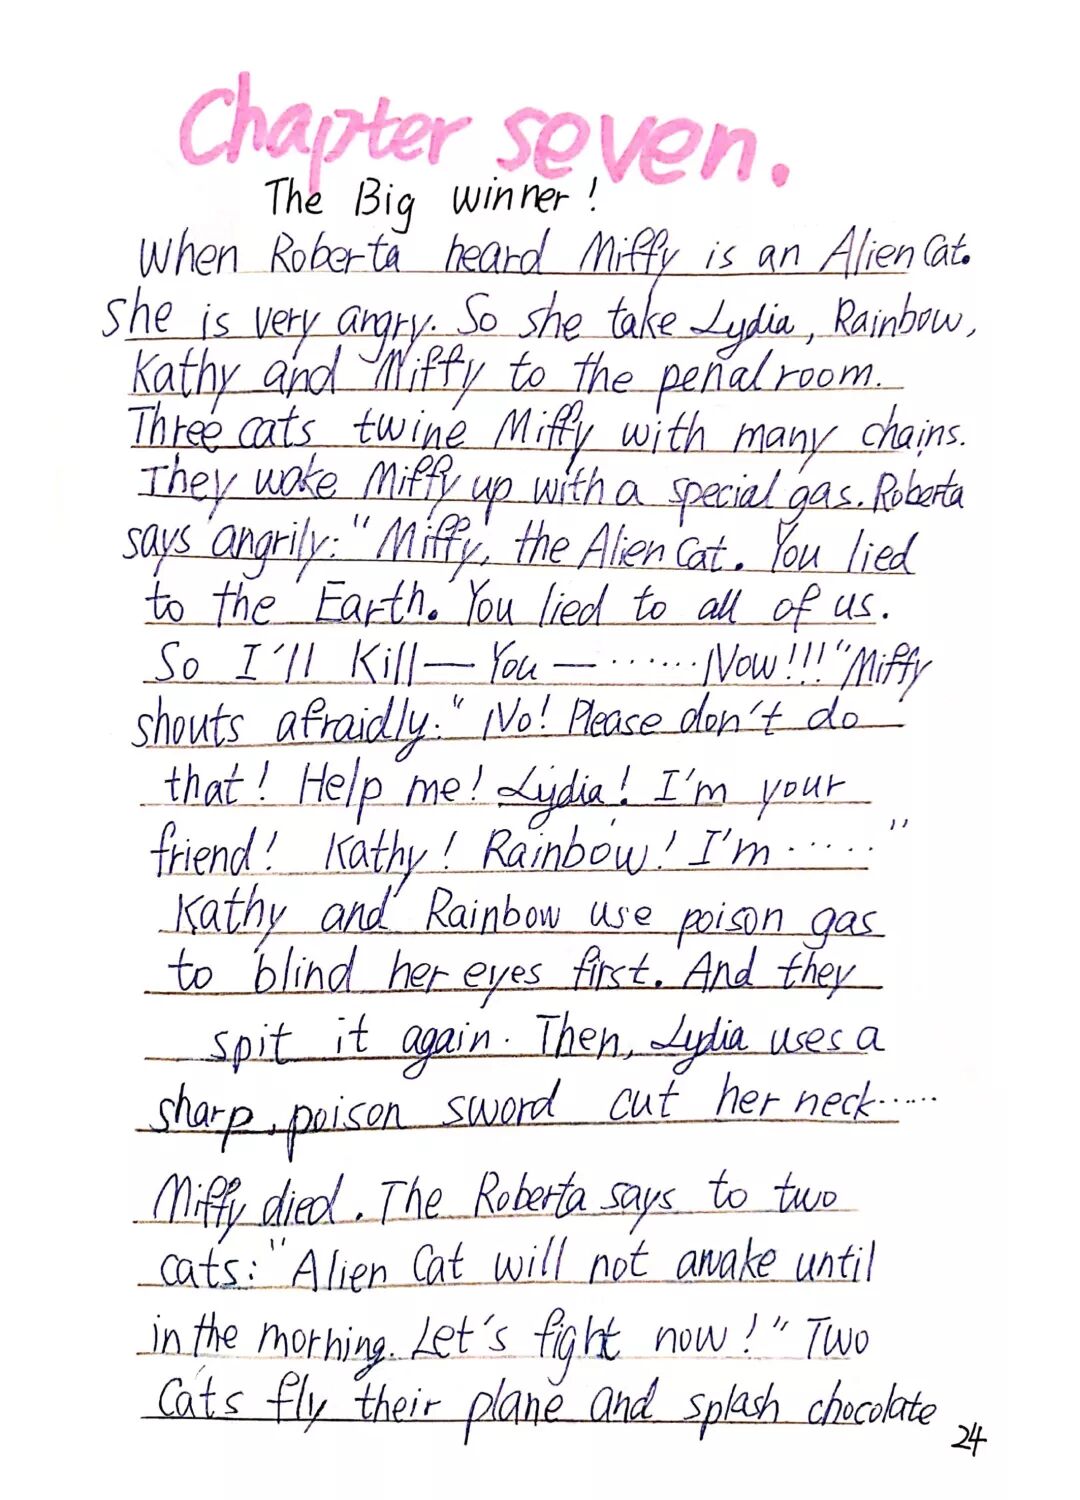 Chapter seven.
The Big winner!
When Roberta heard Miffy is an Alien Cat.
she is very angry. So she take Lydia, Rainbow,
Kathy and Miffy to the penal room.
Three cats twine Miffy with many chains.
They woke Miffy up with a special gas. Roberta
says angrily: "Miffy, the Alien Cat. You lied
to the Earth. You lied to all of us.
So I'll Kill — You — ······ Now!!!" Miffy
shouts afraidly: "No! Please don't do
that! Help me! Lydia! I'm your
friend! Kathy! Rainbow! I'm ····· "
Kathy and Rainbow use poison gas
to blind her eyes first. And they
spit it again. Then, Lydia uses a
sharp, poison sword cut her neck······
Miffy died. The Roberta says to two
cats: "Alien Cat will not awake until
in the morning. Let's fight now!" Two
Cats fly their plane and splash chocolate
24